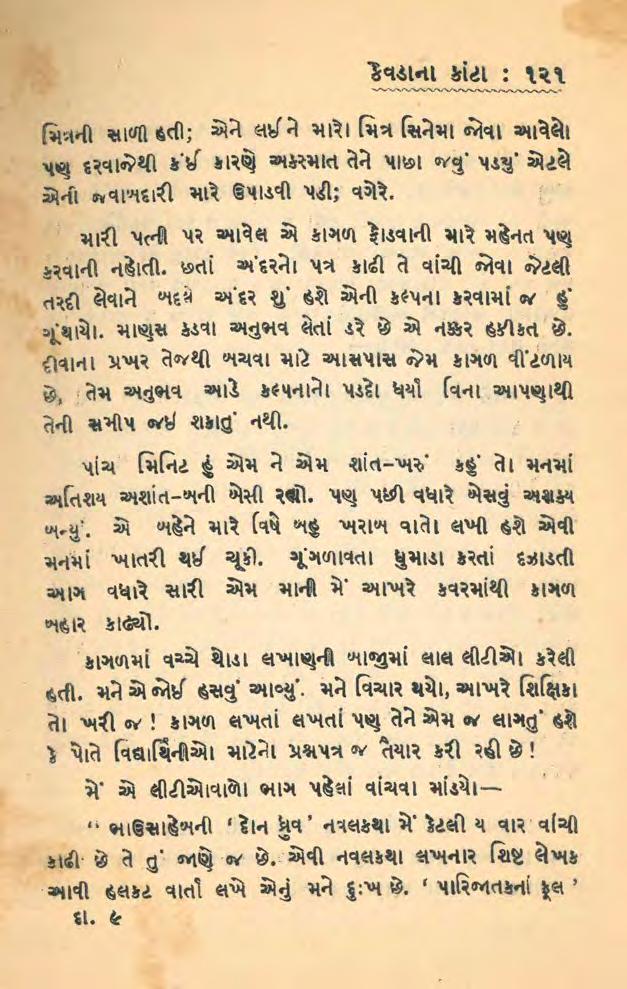 કેવડાના કાંટા : ૧૨૧
મિત્રની સાળી હતી; એને લઈ ને મારો મિત્ર સિનેમા જોવા આવેલો
પણ દરવાજેથી કંઈ કારણે અકસ્માત તેને પાછા જવું પડ્યું એટલે
એની જવાબદારી મારે ઉપાડવી પડી; વગેરે.
મારી પત્ની પર આવેલ એ કાગળ ફોડવાની મારે મહેનત પણ
કરવાની નહોતી. છતાં અંદરનો પત્ર કાઢી તે વાંચી જોવા જેટલી
તરદી લેવાને બદલે અંદર શું હશે એની કલ્પના કરવામાં જ હું
ગૂંથાયો. માણુસ કડવા અનુભવ લેતાં ડરે છે એ નક્કર હકીકત છે.
દીવાના પ્રખર તેજથી બચવા માટે આસપાસ જેમ કાગળ વીંટળાય
છે, તેમ અનુભવ આડે કલ્પનાનો પડદો ધર્યા વિના આપણાથી
તેની સમીપ જઈ શકાતું નથી.
પાંચ મિનિટ હું એમ ને એમ શાંત-ખરું કહું તો મનમાં
અતિશય અશાંત-બની બેસી રહ્યો. પણ પછી વધારે બેસવું અશક્ય
બન્યું. એ બહેને મારે વિષે બહુ ખરાબ વાતો લખી હશે એવી
મનમાં ખાતરી થઈ ચૂકી. ગૂંગળાવતા ધુમાડા કરતાં દઝાડતી
આગ વધારે સારી એમ માની મેં આખરે કવરમાંથી કાગળ
બહાર કાઢ્યો.
કાગળમાં વચ્ચે થોડા લખાણની બાજુમાં લાલ લીટીઓ કરેલી
હતી. મને એ જોઈ હસવું આવ્યું. મને વિચાર થયો, આખરે શિક્ષિકા
તો ખરી જ ! કાગળ લખતાં લખતાં પણ તેને એમ જ લાગતું હશે
કે પોતે વિદ્યાર્થિનીઓ માટેનો પ્રશ્નપત્ર જ તૈયાર કરી રહી છે !
મેં એ લીટીઓવાળો ભાગ પહેલાં વાંચવા માંડ્યો—
“ ભાઉસાહેબની ‘ દોન ધ્રુવ’ નવલકથા મેં કેટલી ય વાર વાંચી
કાઢી છે તે તું જાણે જ છે. એવી નવલકથા લખનાર શિષ્ટ લેખક
આવી હલકટ વાર્તા લખે એનું મને દુઃખ છે. ‘ પારિજાતકનાં ફૂલ ’
દા. ૯